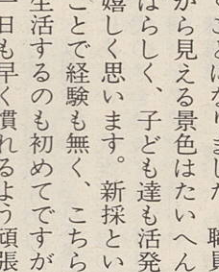 ことになりました。職員
から見える景色はたいへん
ばらしく、子ども達も活発
嬉しく思います。新採とい
ことで経験も無く、こちら
生活するのも初めてですが
一日も早く慣れるよう頑張